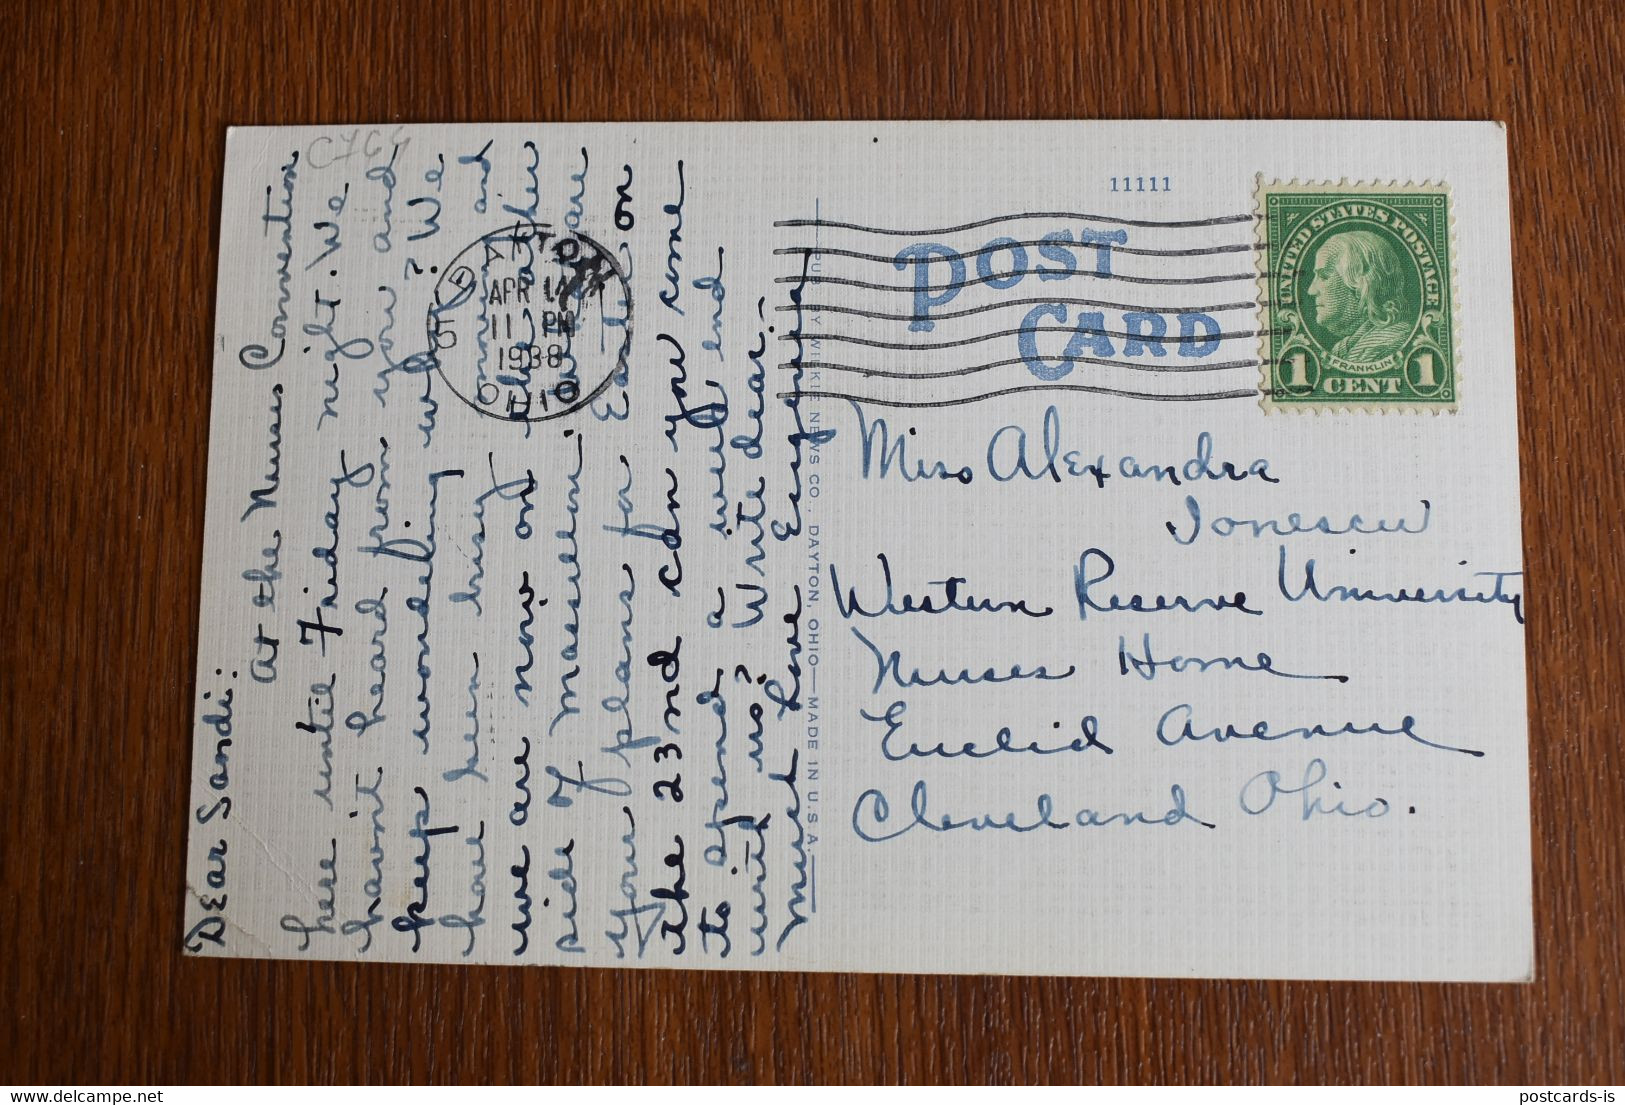 C764
Dear Sandi:
At the Nurses Convention
here until Friday night. We
havn't heard from you and
keep wondering why? We
have been busy and
we are now on the other
side of Massillon. are
your plans for Easter on
the 23nd can you come
to spend a week end
with us? Write dear.—
Much Love Eugenia
DAYTON
APR 14
11 PM
1938
OHIO
PUB. BY WILKIE NEWS CO., DAYTON, OHIO—MADE IN U.S.A.
11111
POST
CARD
UNITED STATES POSTAGE
FRANKLIN
1 CENT 1
Miss Alexandra
Ionescu
Western Reserve University
Nurses Home
Euclid Avenue
Cleveland Ohio.
postcards-is